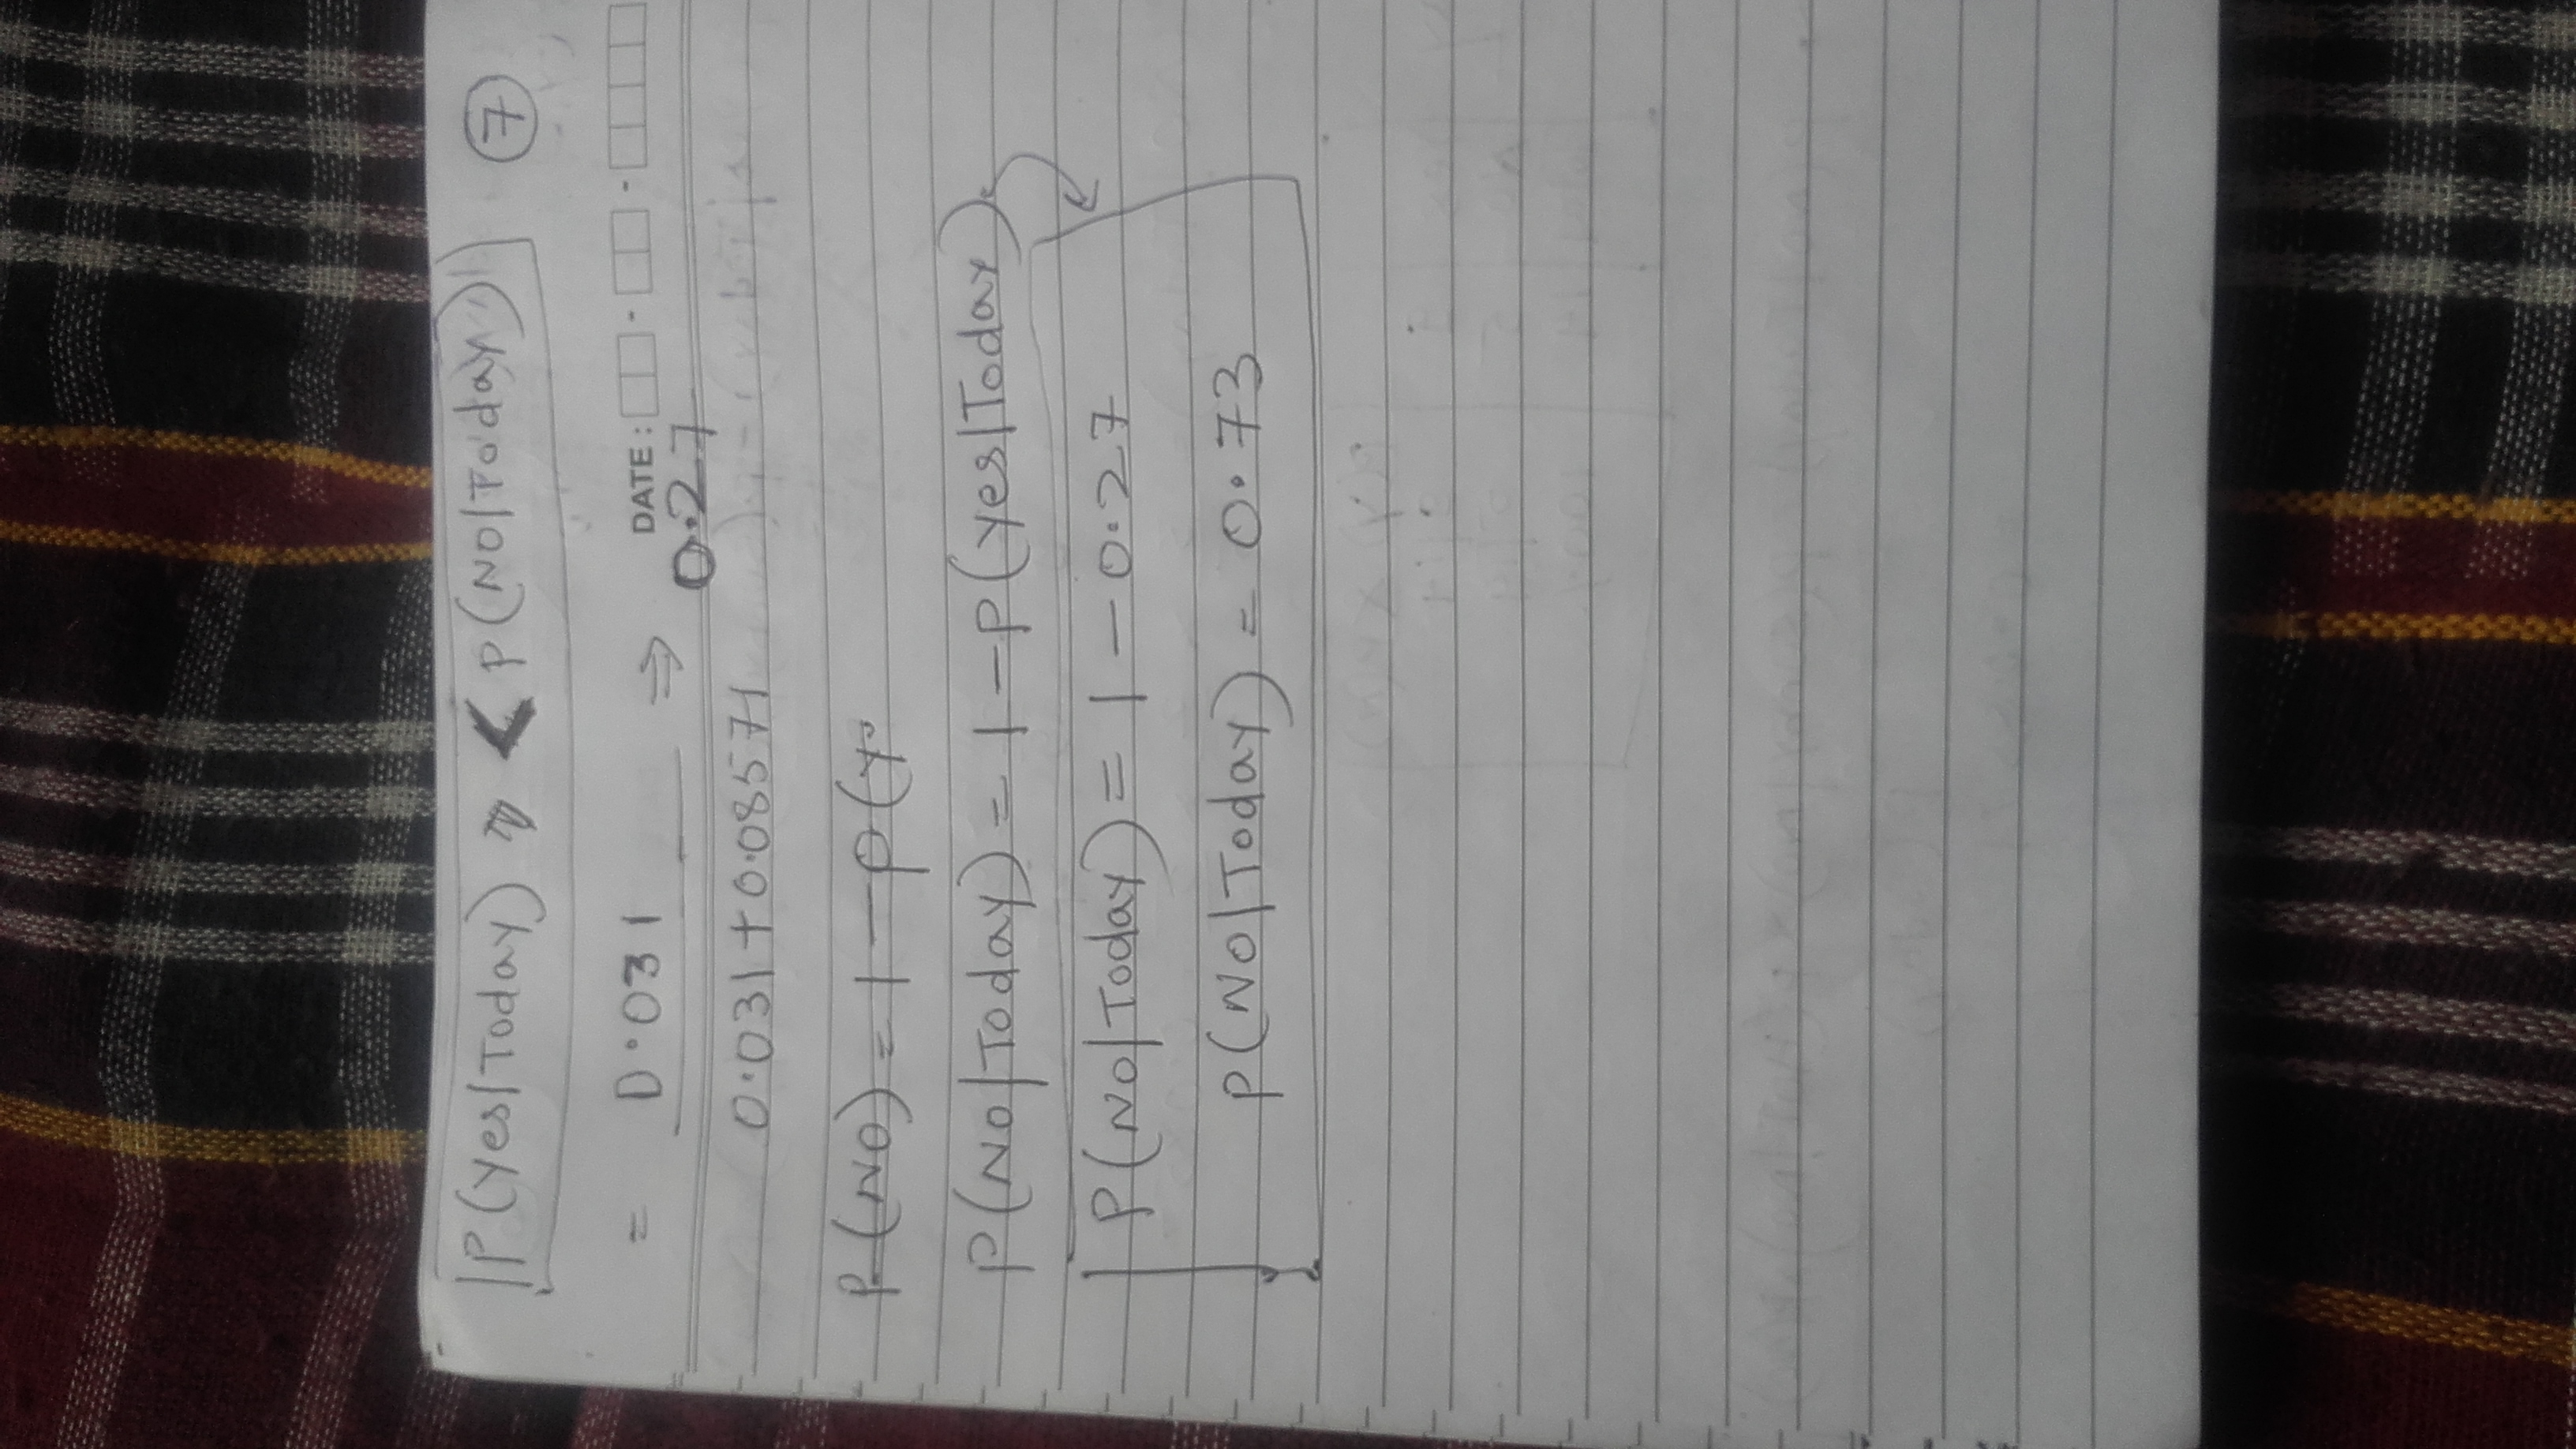 P(Yes/Today) < P(No/Today) 7
= 0.031 ⇒ DATE : - -
0.27
0.031+0.08571
P(No) = 1-P(Y
P(No/Today) = 1-P(yes/Today)
P(No/Today) = 1-0.27
P(No/Today) = 0.73